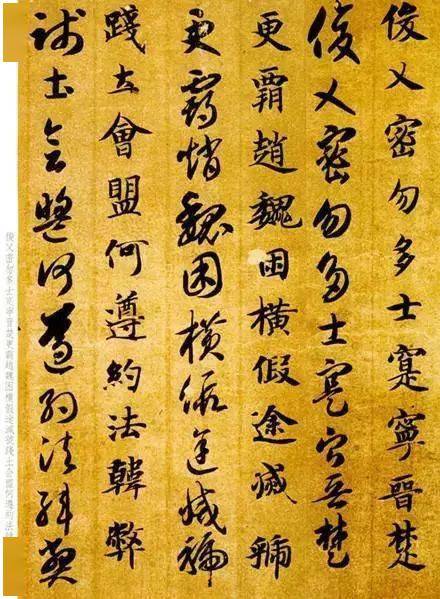 俊乂密勿多士寔寧晉楚
俊乂密勿多士寔寧晉楚
更霸趙魏困橫假途滅虢
更霸趙魏困橫假途滅虢
踐土會盟何遵約法韓弊
踐土會盟何遵約法韓弊
俊乂密勿多士寔寧晉楚更霸趙魏困橫假途滅虢踐土會盟何遵約法